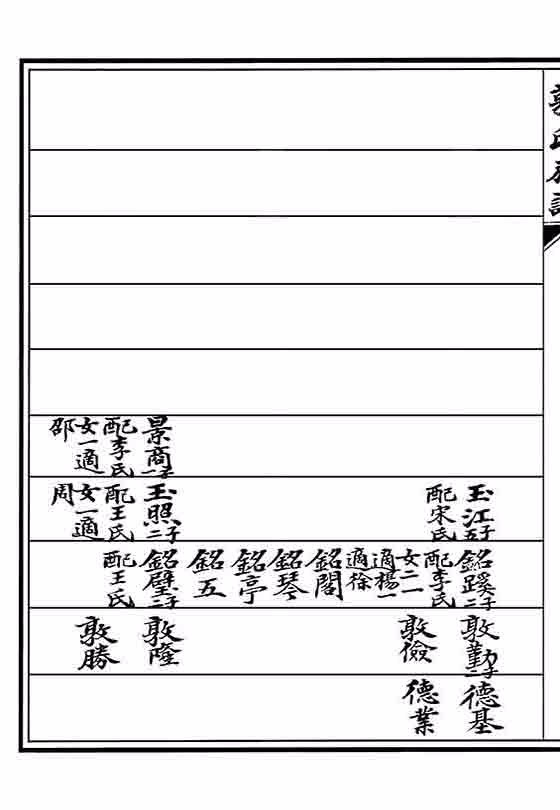 郭氏族譜
景商一子
配李氏
女一適
邵
玉江五子
配宋氏
玉照二子
配王氏
女一適
周
銘蹊二子
配李氏
女二一
適楊一
適徐
銘閣
銘琴
銘亭
銘五
銘璧二子
配王氏
敦勤二子
敦儉
敦隆
敦勝
德基
德業